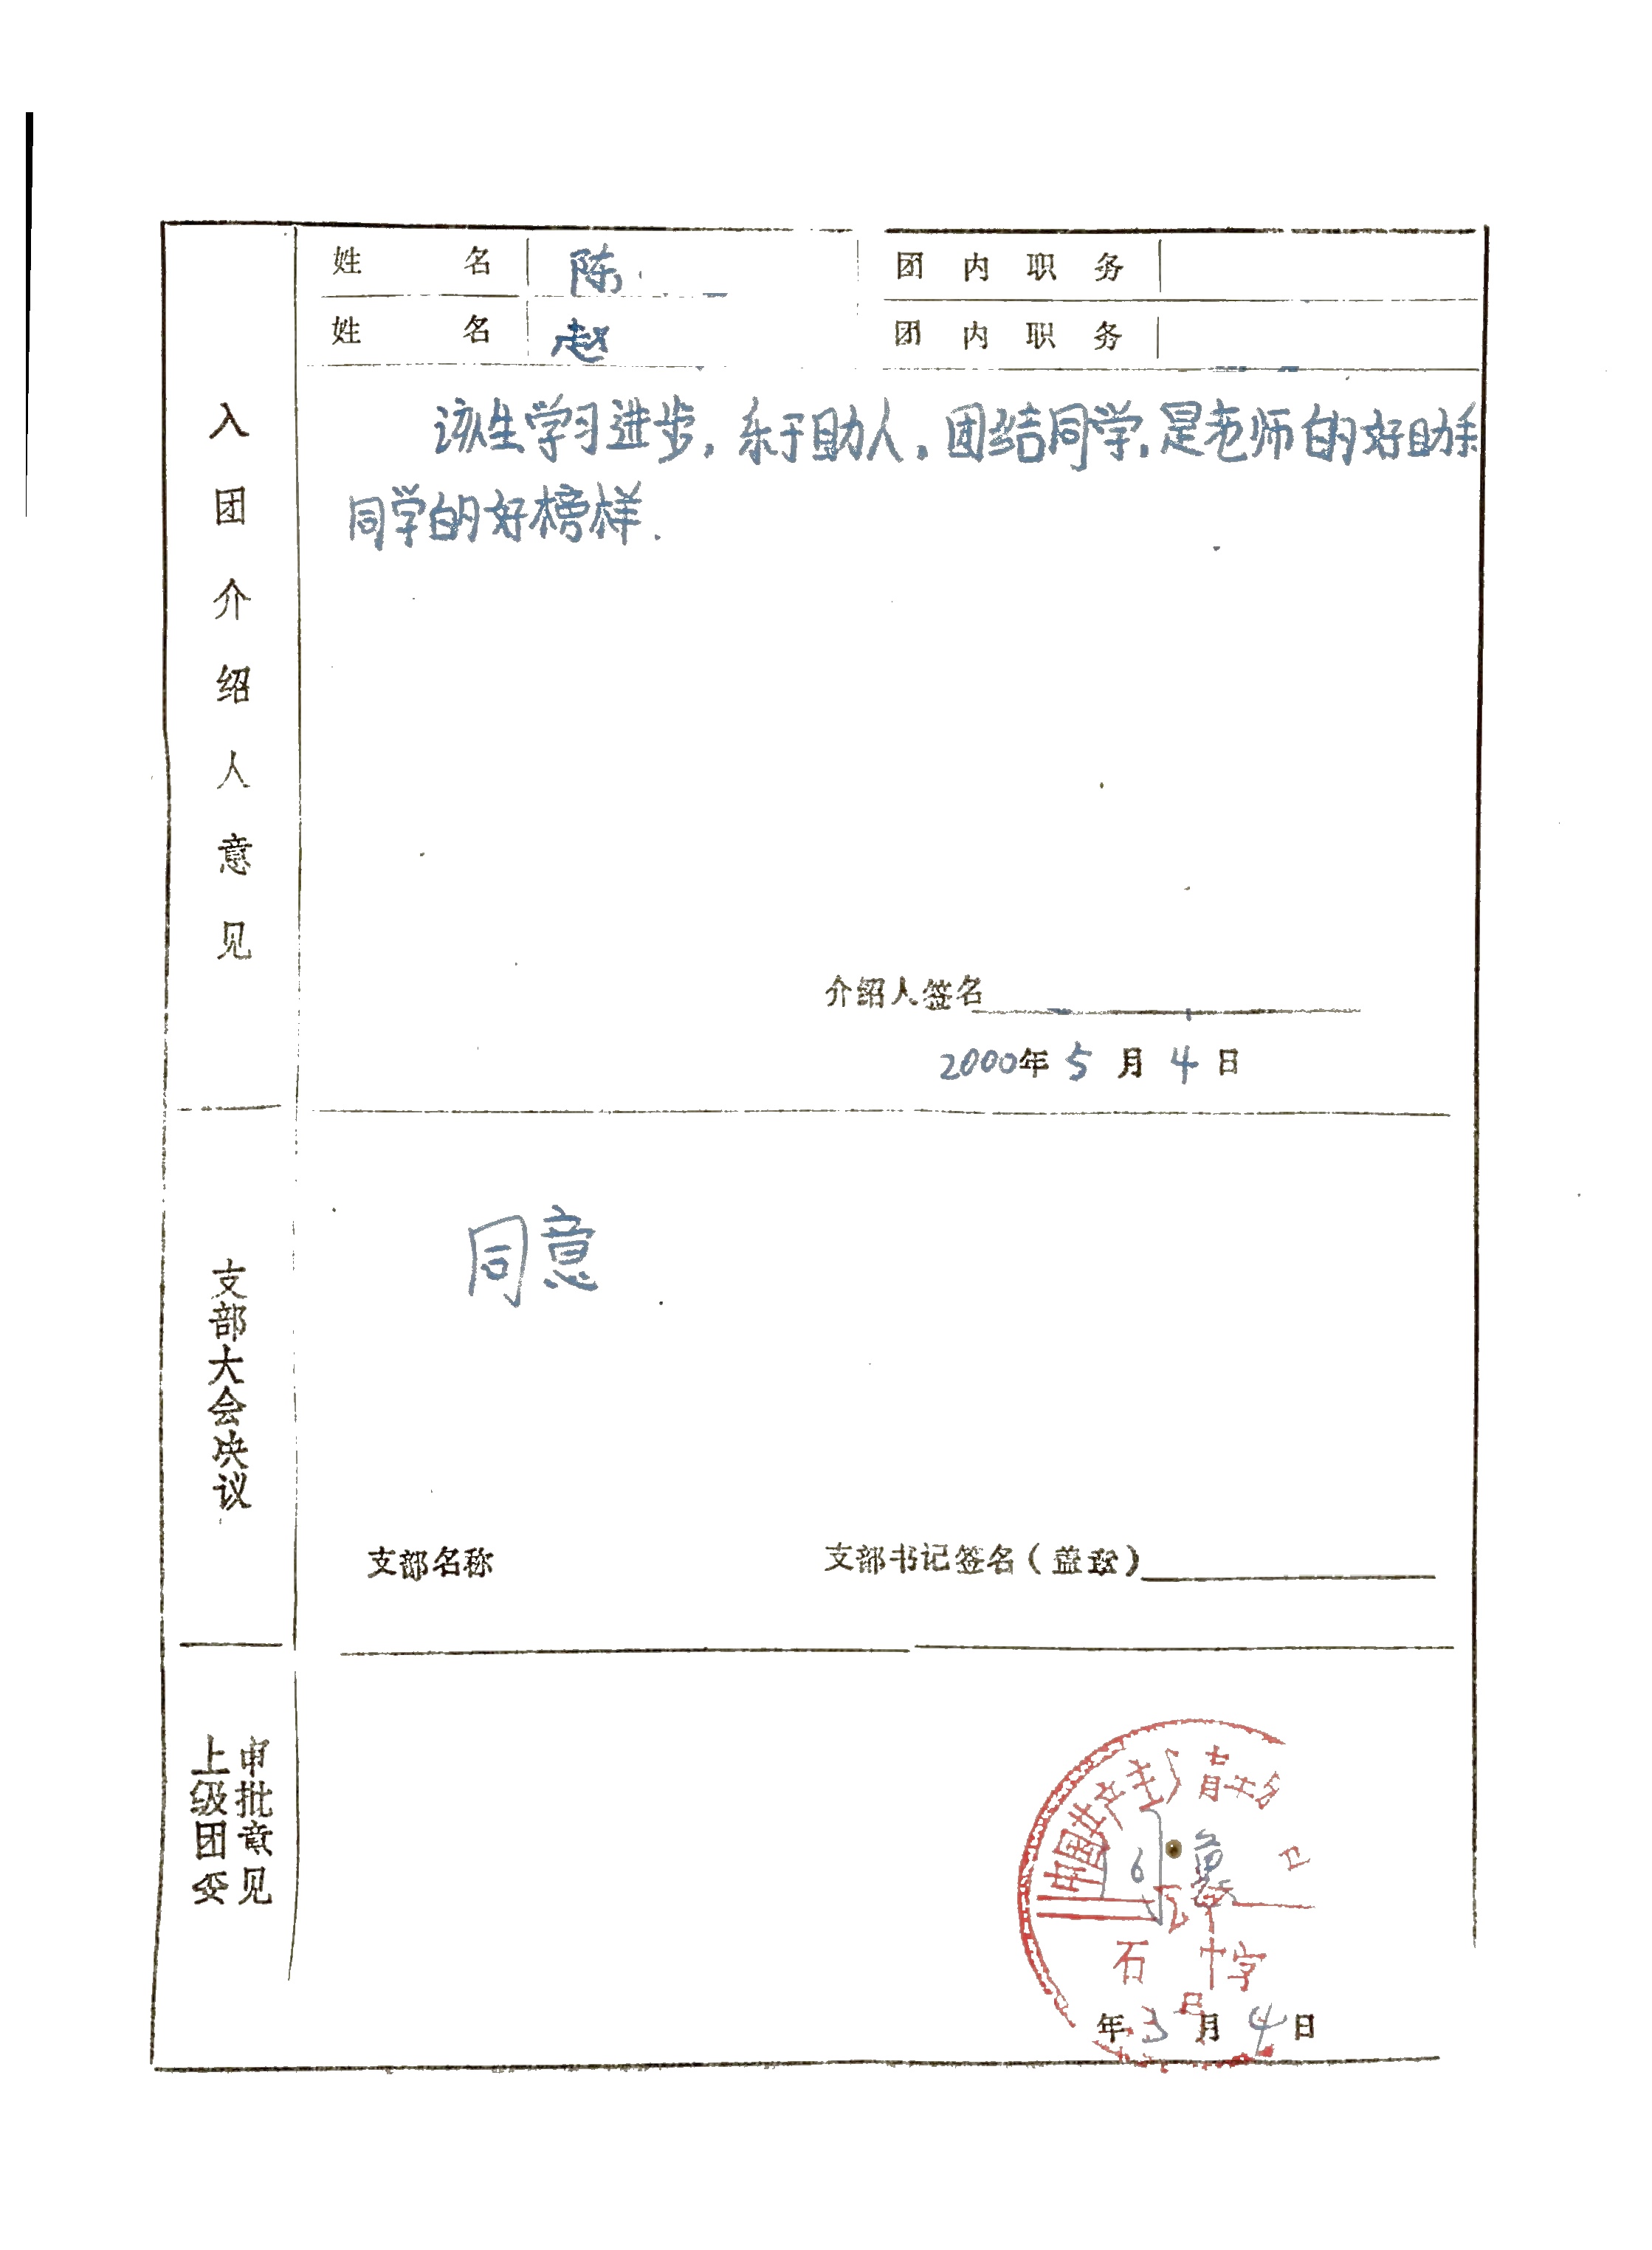 姓 名 陈 团内职务
姓 名 赵 团内职务
入团介绍人意见
该生学习进步，乐于助人，团结同学，是老师的好助手
同学的好榜样.
介绍人签名
2000年5月4日
支部大会决议
同意
支部名称 支部书记签名（盖章）
上级团委
审批意见
中国共产主
青年
石 十字
年 月4日